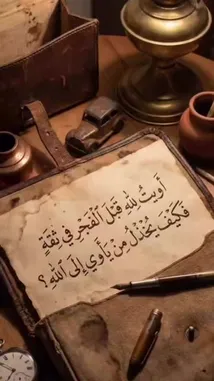 أَوَيْتُ لِلّٰهِ قَبْلَ الْفَجْرِ فِي ثِقَةٍ
فَكَيْفَ يُخْذَلُ مِنْ يَأْوِي إِلَى اللهِ؟